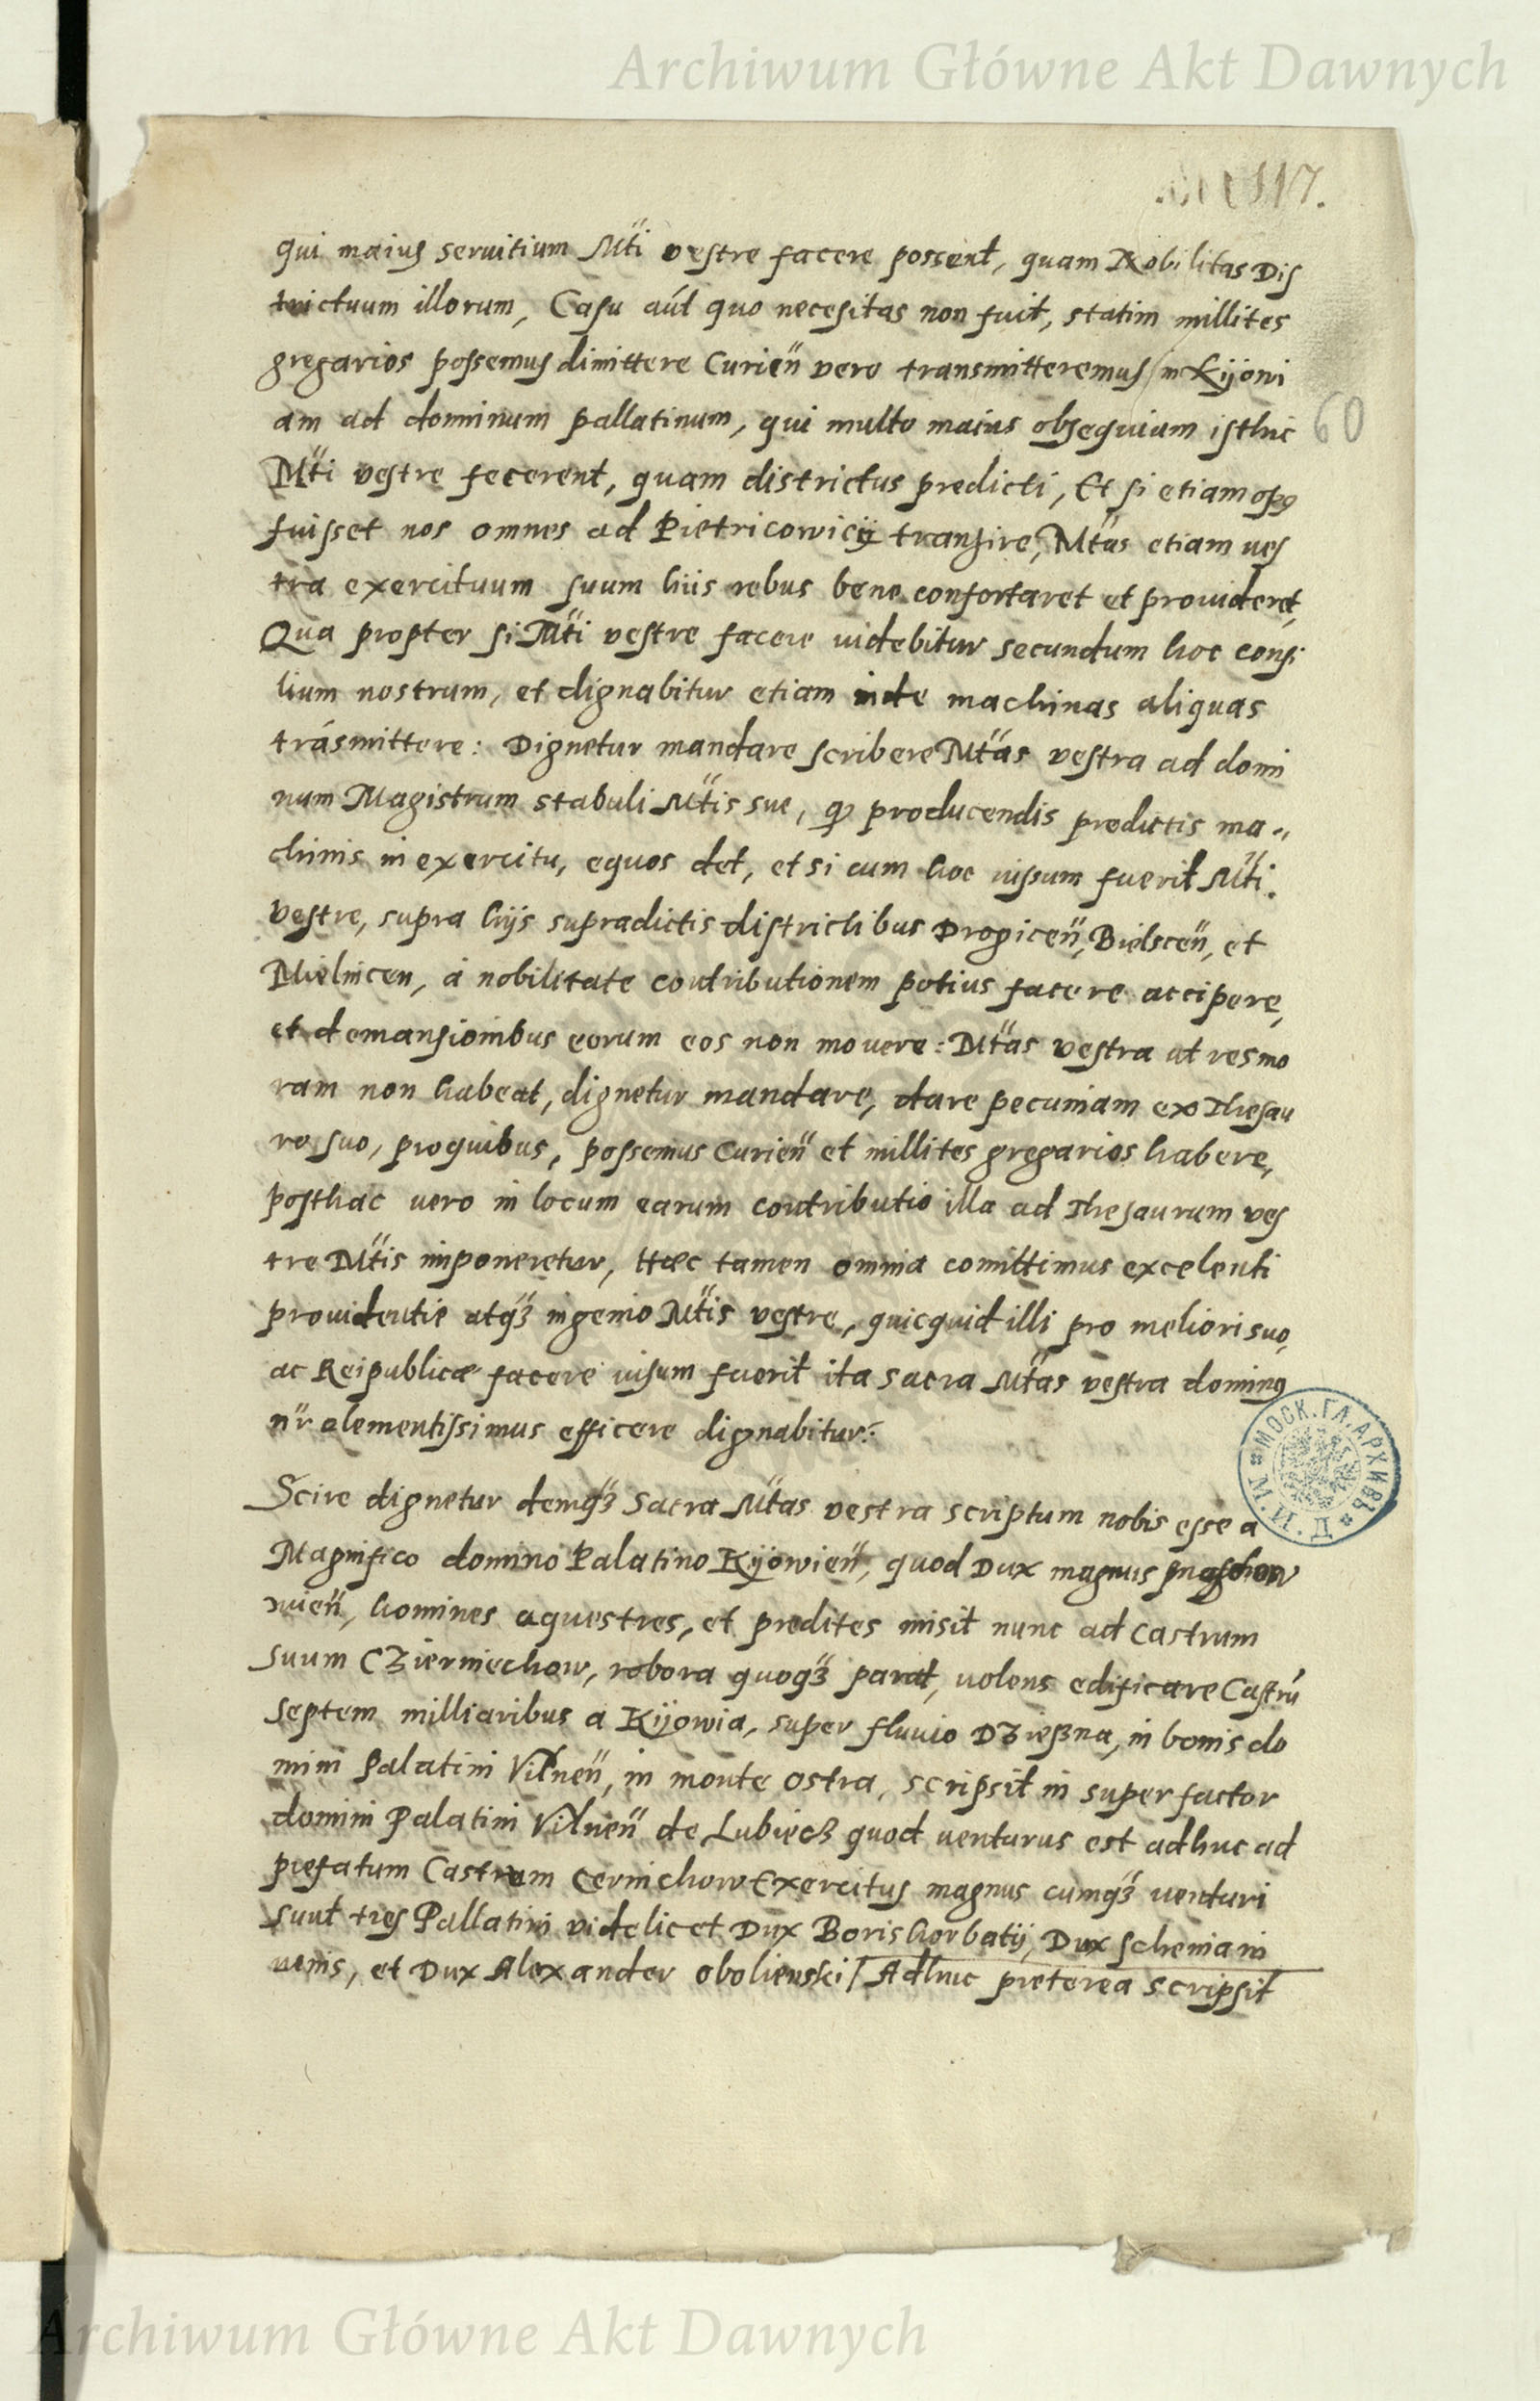 Archiwum Główne Akt Dawnych
117.
qui maius seruitium Mti vestre facere possent, quam Nobilitas Dis
trictuum illorum, Casu aut quo necesitas non fuit, statim millites
gregarios possemus dimittere Curien vero transmitteremus in Kijowi
am ad dominum pallatinum, qui multo maius obsequium isthic
60
Mti vestre fecerent, quam districtus predicti, Et si etiam opus
fuisset nos omnes ad Pietricowicij transire, Mtas etiam ves
tra exercituum suum hiis rebus bene confortaret et prouideret,
Qua propter si Mti vestre facere uidebitur secundum hoc consi
lium nostrum, et dignabitur etiam inde machinas aliquas
trásmittere: Dignetur mandare scribere Mtas vestra ad domi
num Magistrum stabuli Mtis sue, producendis predictis ma-
chinis in exercitu, equos det, et si cum hoc uissum fuerit Mti.
vestre, supra hijs supradictis districtibus Drogicen, Bielscen, et
Mielnicen, á nobilitate contributionem potius facere accipere,
et demansionibus eorum eos non mouere: Mtas vestra ut res mo
ram non habeat, dignetur mandare, dare pecuniam ex Thesau
ro suo, proquibus, possemus Curien et millites gregarios habere,
posthac uero in locum earum contributio illa ad Thesaurum ves
tre Mtis imponeretur, Hæc tamen omnia comittimus excelenti
prouidentie atqȝ ingenio Mtis vestre, quicquid illi pro meliori suo,
ac Reipublicæ facere uisum fuerit ita sacra Mtas vestra dominus
nr clementissimus efficere dignabitur:
Scire dignetur demqȝ sacra Mtas vestra scriptum nobis esse a
Magnifico domino Palatino Kijowien, quod Dux magnus
wien, homines aquestres, et predites misit nunc ad castrum
suum Cȝierniechow, robora quoqȝ parat, uolens edificare Castrú
septem milliaribus a Kijowia, super fluuio Dȝießna, in bonis do
mini Palatini Vilnen, in monte Ostra, scripsit in super factor
domini Palatini Vilnen de Lubiecȝ quod uenturus est adhuc ad
prefatum Castrum Cernichow Exercitus magnus cumqȝ venturi
sunt tres Pallatini videlicet Dux Boris horbatij, Dux schenia in
uenis, et Dux Alexander obolienski / Adhuc preterea scripsit
МОСК. ГЛ. АРХИВЪ * М. И. Д. *
Archiwum Główne Akt Dawnych